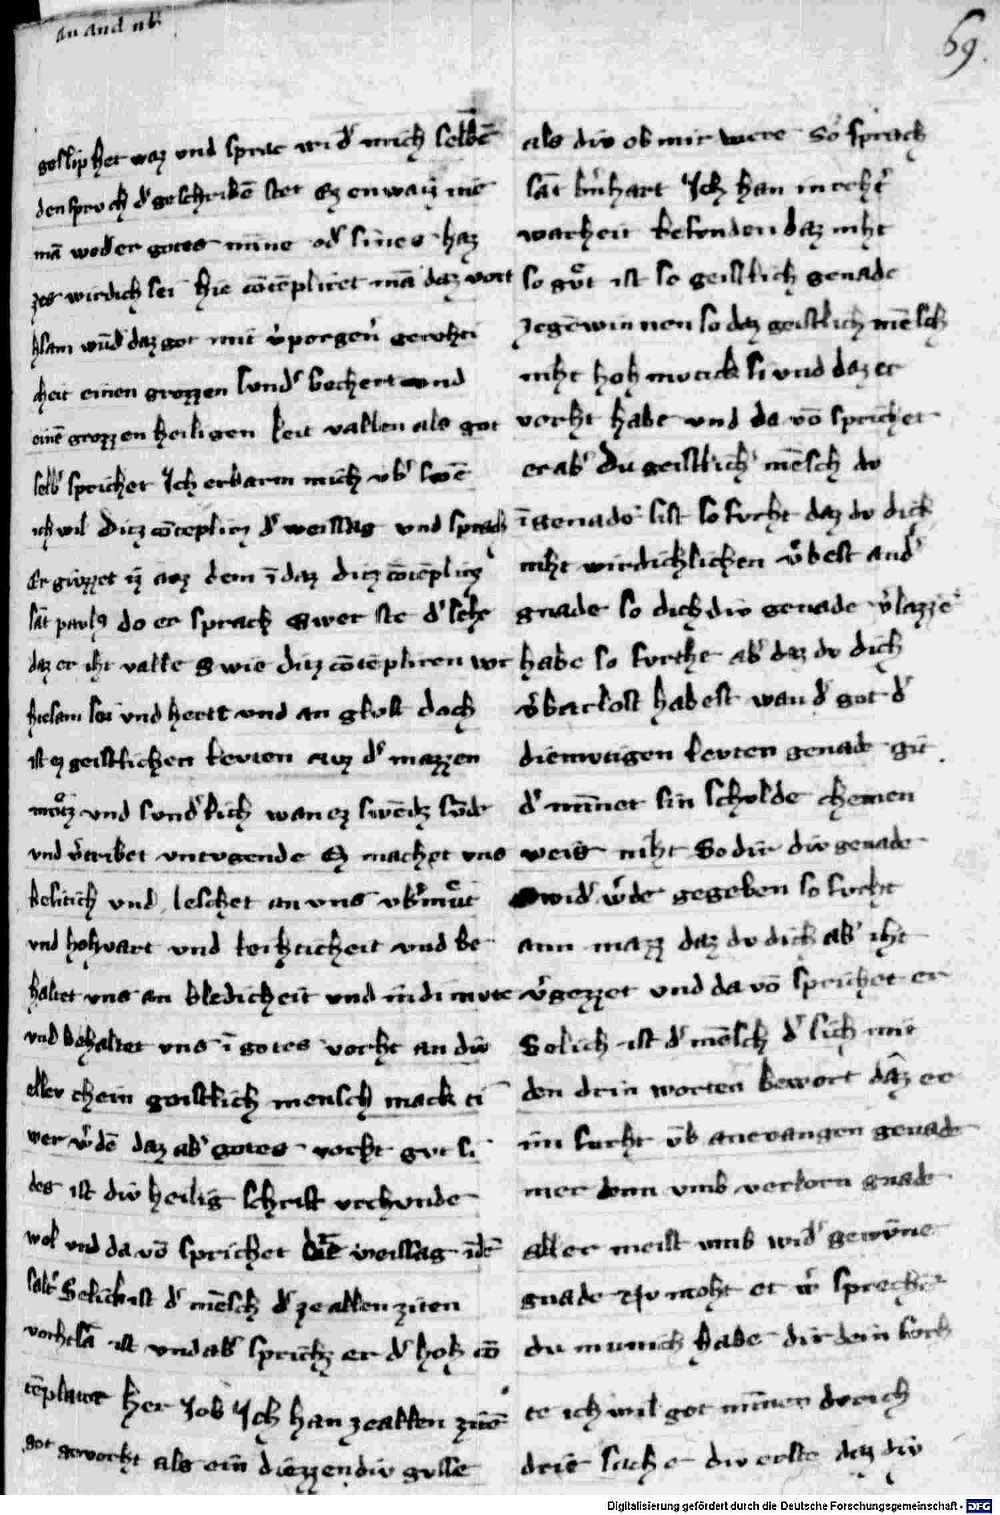 69.
geslipher waz und sprac wid' mich selbē
den sproch d' geschribē stet Ez enwaiz nie
mā weder gotes mine od' sines haz
zes wirdich sei hie cōtēpliret mā daz vort
hsam wūd' daz got mit v'porgen' gerehti
cheit einen grozzen sund' bechert und
einē grozzen heiligen leit vallen als got
selb' sprichet Ich erbarm mich vb' swē
ich wil Ditz cōteplirz d' weissag und sprach
Er givzzet iz auz dem ī daz ditz cōtēplirz
sāt paulꝰ do er sprach Swer ste d' sehe
daz er iht valle Swie ditz cōtēpliren vor
htsam sei vnd hertt vnd an glust doch
ist ez geistlichen levten auz d' mazzen
nutz und sund'lich wan ez swēdz sūde
und v'tribet untugende Ez machet vns
leitich vnd leschet an uns vb'mut
vnd hohvart vnd leihticheit vnd be
haltet vns an bledicheit und in dimute
vnd behaltet vns ī gotes vorht an div
ellev chein geistlich mensch mack ti
wer w'dē daz ab' gotes vorht gut si
des ist div heilig schrift vrchunde
wol vnd da vō sprichet die weissag ī dē
salt' Selich ist d' mēsch d' ze allen ziten
vorhtsā ist und ab' sprichz er d' hoh cō
tēplator her Job Ich han ze allen zitē
got gevorht als ein diezzendiv gulle
als div ob mir were So sprach
sāt b'nhart Ich han in reht'
warheit befunden daz niht
so gut ist so geistlich genade
ze gewinnen so daz geistlich mēsch
niht hoh mutick si vnd daz er
vorht habe und da vō sprichet
er ab' Du geistlich' mēsch du
ī genade sist so furht daz du dich
niht wirdichlichen v'best an d'
gnade so dich div genade v'lazze
habe so furhte ab' daz du dich
v'barlost habest wan d' got d'
diemutigen levten genade git
d' nimet sin scholde chemen
weis niht So dir div genade
wid' w'de gegeben so furht
ann mazz daz du dich ab' iht
v'gezzet und da vō sprichet er
Selich ist d' mēsch d' sich mit
den drin worten bewort daz er
im furht vb anevangen genade
mer denn umb verlorn gnade
aller meist umb wid' gewūne
gnade Nu moht et w' sprechē
du munich habe dir dein forh
te ich wil got minnen durich
drie sache div erste daz div
Digitalisierung gefördert durch die Deutsche Forschungsgemeinschaft - DFG